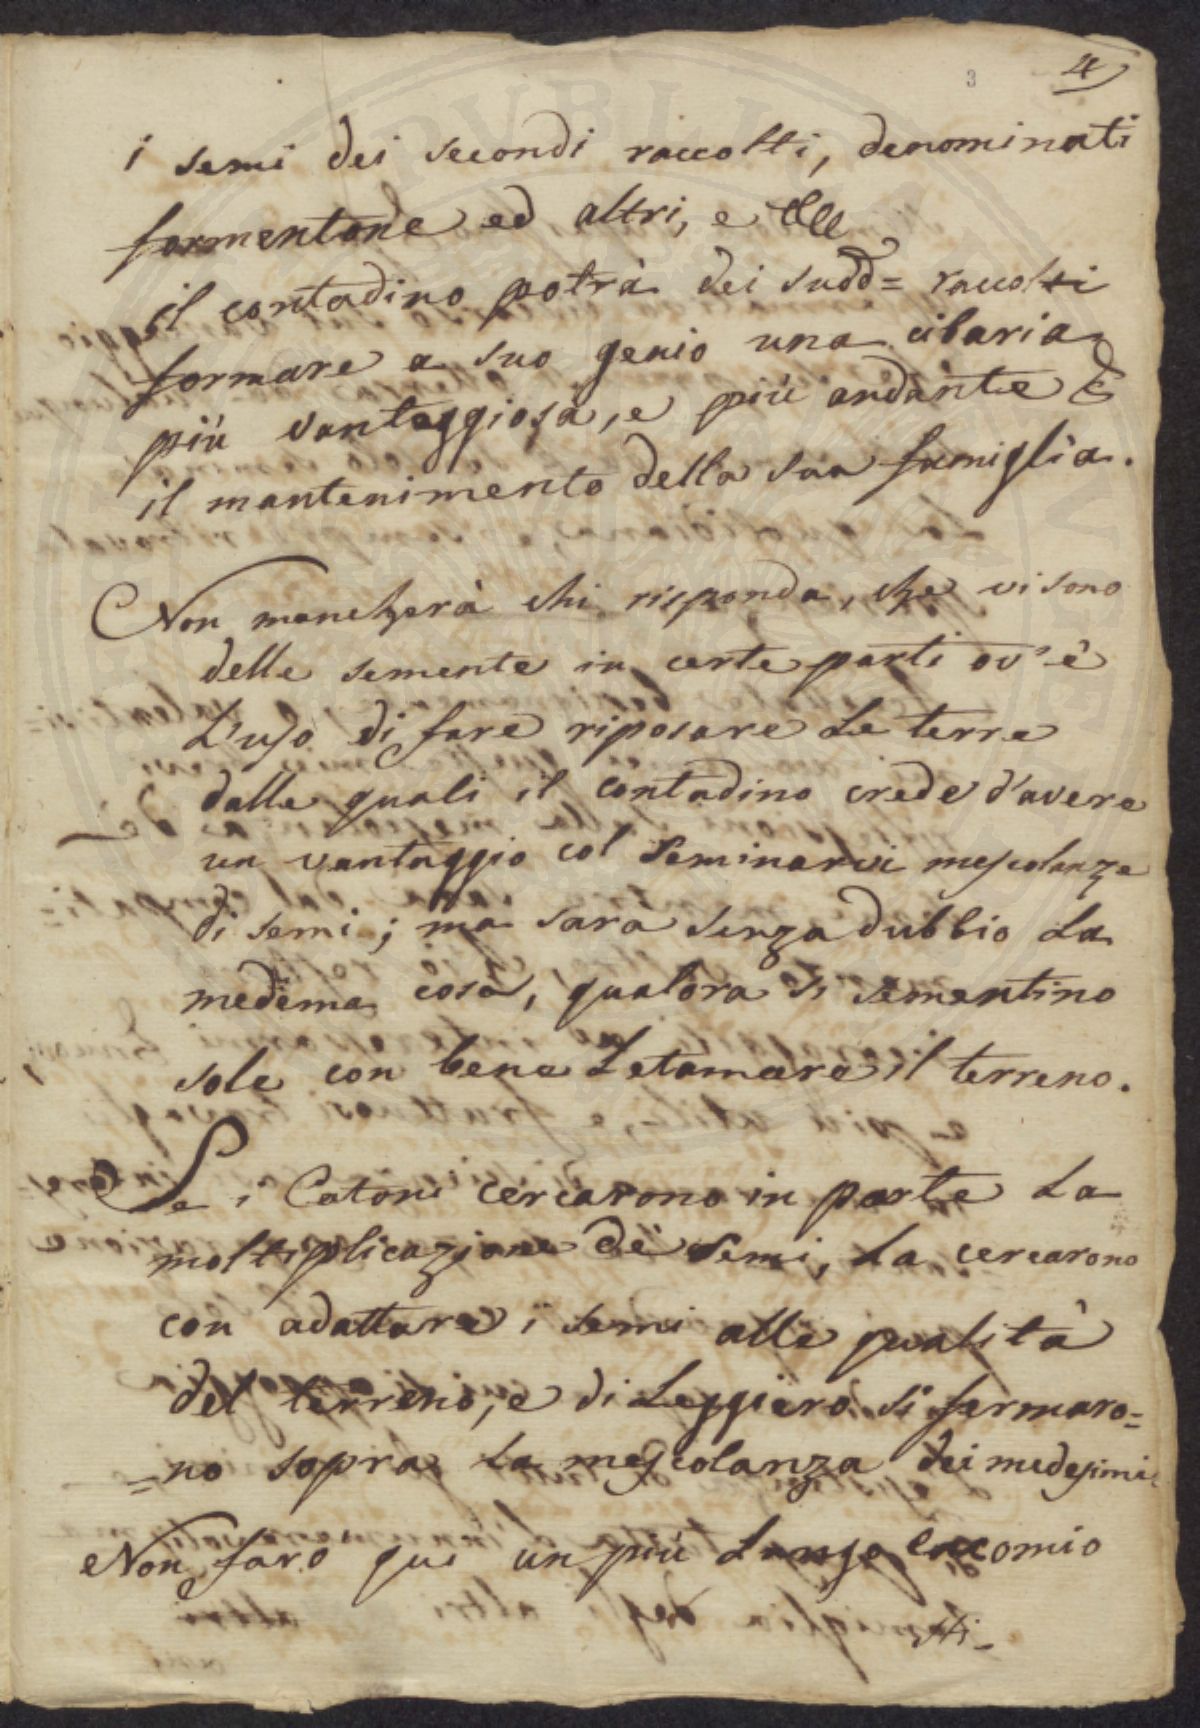 3
4
i semi dei secondi raccolti, denominati
formentone ed altri, e
il contadino potrà dei sudd= raccolti
formare a suo genio una cibaria
più vantaggiosa, e più andante
il mantenimento della sua famiglia.
Non mancherà chi risponda, che vi sono
delle semente in certe parti ov'è
L'uso di fare riposare Le terre
dalle quali il contadino crede d'avere
un vantaggio col Seminarvi mescolanze
di semi; ma sarà senza dubbio La
medema cosa, qualora si sementino
sole con bene Letamare il terreno.
Se i Catoni cercarono in parte La
moltiplicazione de Semi, La cercarono
con adattare i semi alle qualità
del terreno, e di Leggiero si fermaro=
=no sopra La mescolanza dei medesimi.
Non farò qui un più Lungo encomio